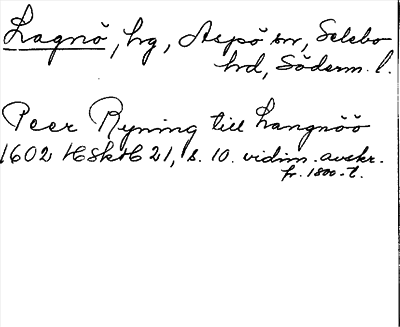 Lagnö, hg, Aspö sn, Selebo
hd, Söderm. l.
Peer Ryning till Langnöö
1602 HSkH 21, s. 10. vidim. avskr.
fr. 1800-t.